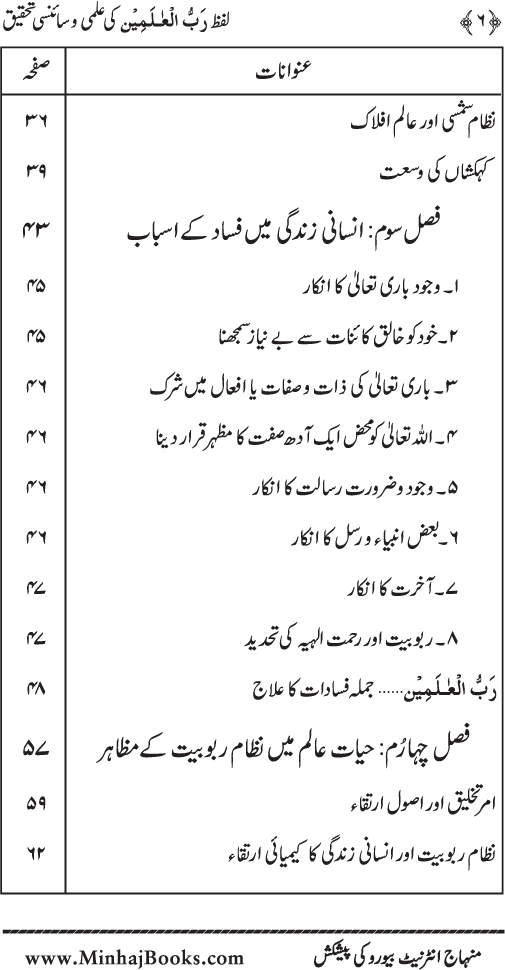 ﴿۶﴾ لفظ رَبُّ الْعٰـلَمِيْن کی علمی و سائنسی تحقیق
عنوانات صفحہ
نظام شمسی اور عالم افلاک ۳۶
کہکشاں کی وسعت ۳۹
فصل سوم: انسانی زندگی میں فساد کے اسباب ۴۳
۱۔ وجود باری تعالیٰ کا انکار ۴۵
۲۔ خود کو خالق کائنات سے بے نیاز سمجھنا ۴۵
۳۔ باری تعالیٰ کی ذات و صفات یا افعال میں شرک ۴۶
۴۔ اللہ تعالیٰ کو محض ایک آدھ صفت کا مظہر قرار دینا ۴۶
۵۔ وجود و ضرورت رسالت کا انکار ۴۶
۶۔ بعض انبیاء و رسل کا انکار ۴۶
۷۔ آخرت کا انکار ۴۷
۸۔ ربوبیت اور رحمت الٰہیہ کی تحدید ۴۷
رَبُّ الْعٰـلَمِيْن...... جملہ فسادات کا علاج ۴۸
فصل چہارُم: حیات عالم میں نظام ربوبیت کے مظاہر ۵۷
امر تخلیق اور اصول ارتقاء ۵۹
نظام ربوبیت اور انسانی زندگی کا کیمیائی ارتقاء ۶۲
منہاج انٹرنیٹ بیورو کی پیشکش www.MinhajBooks.com